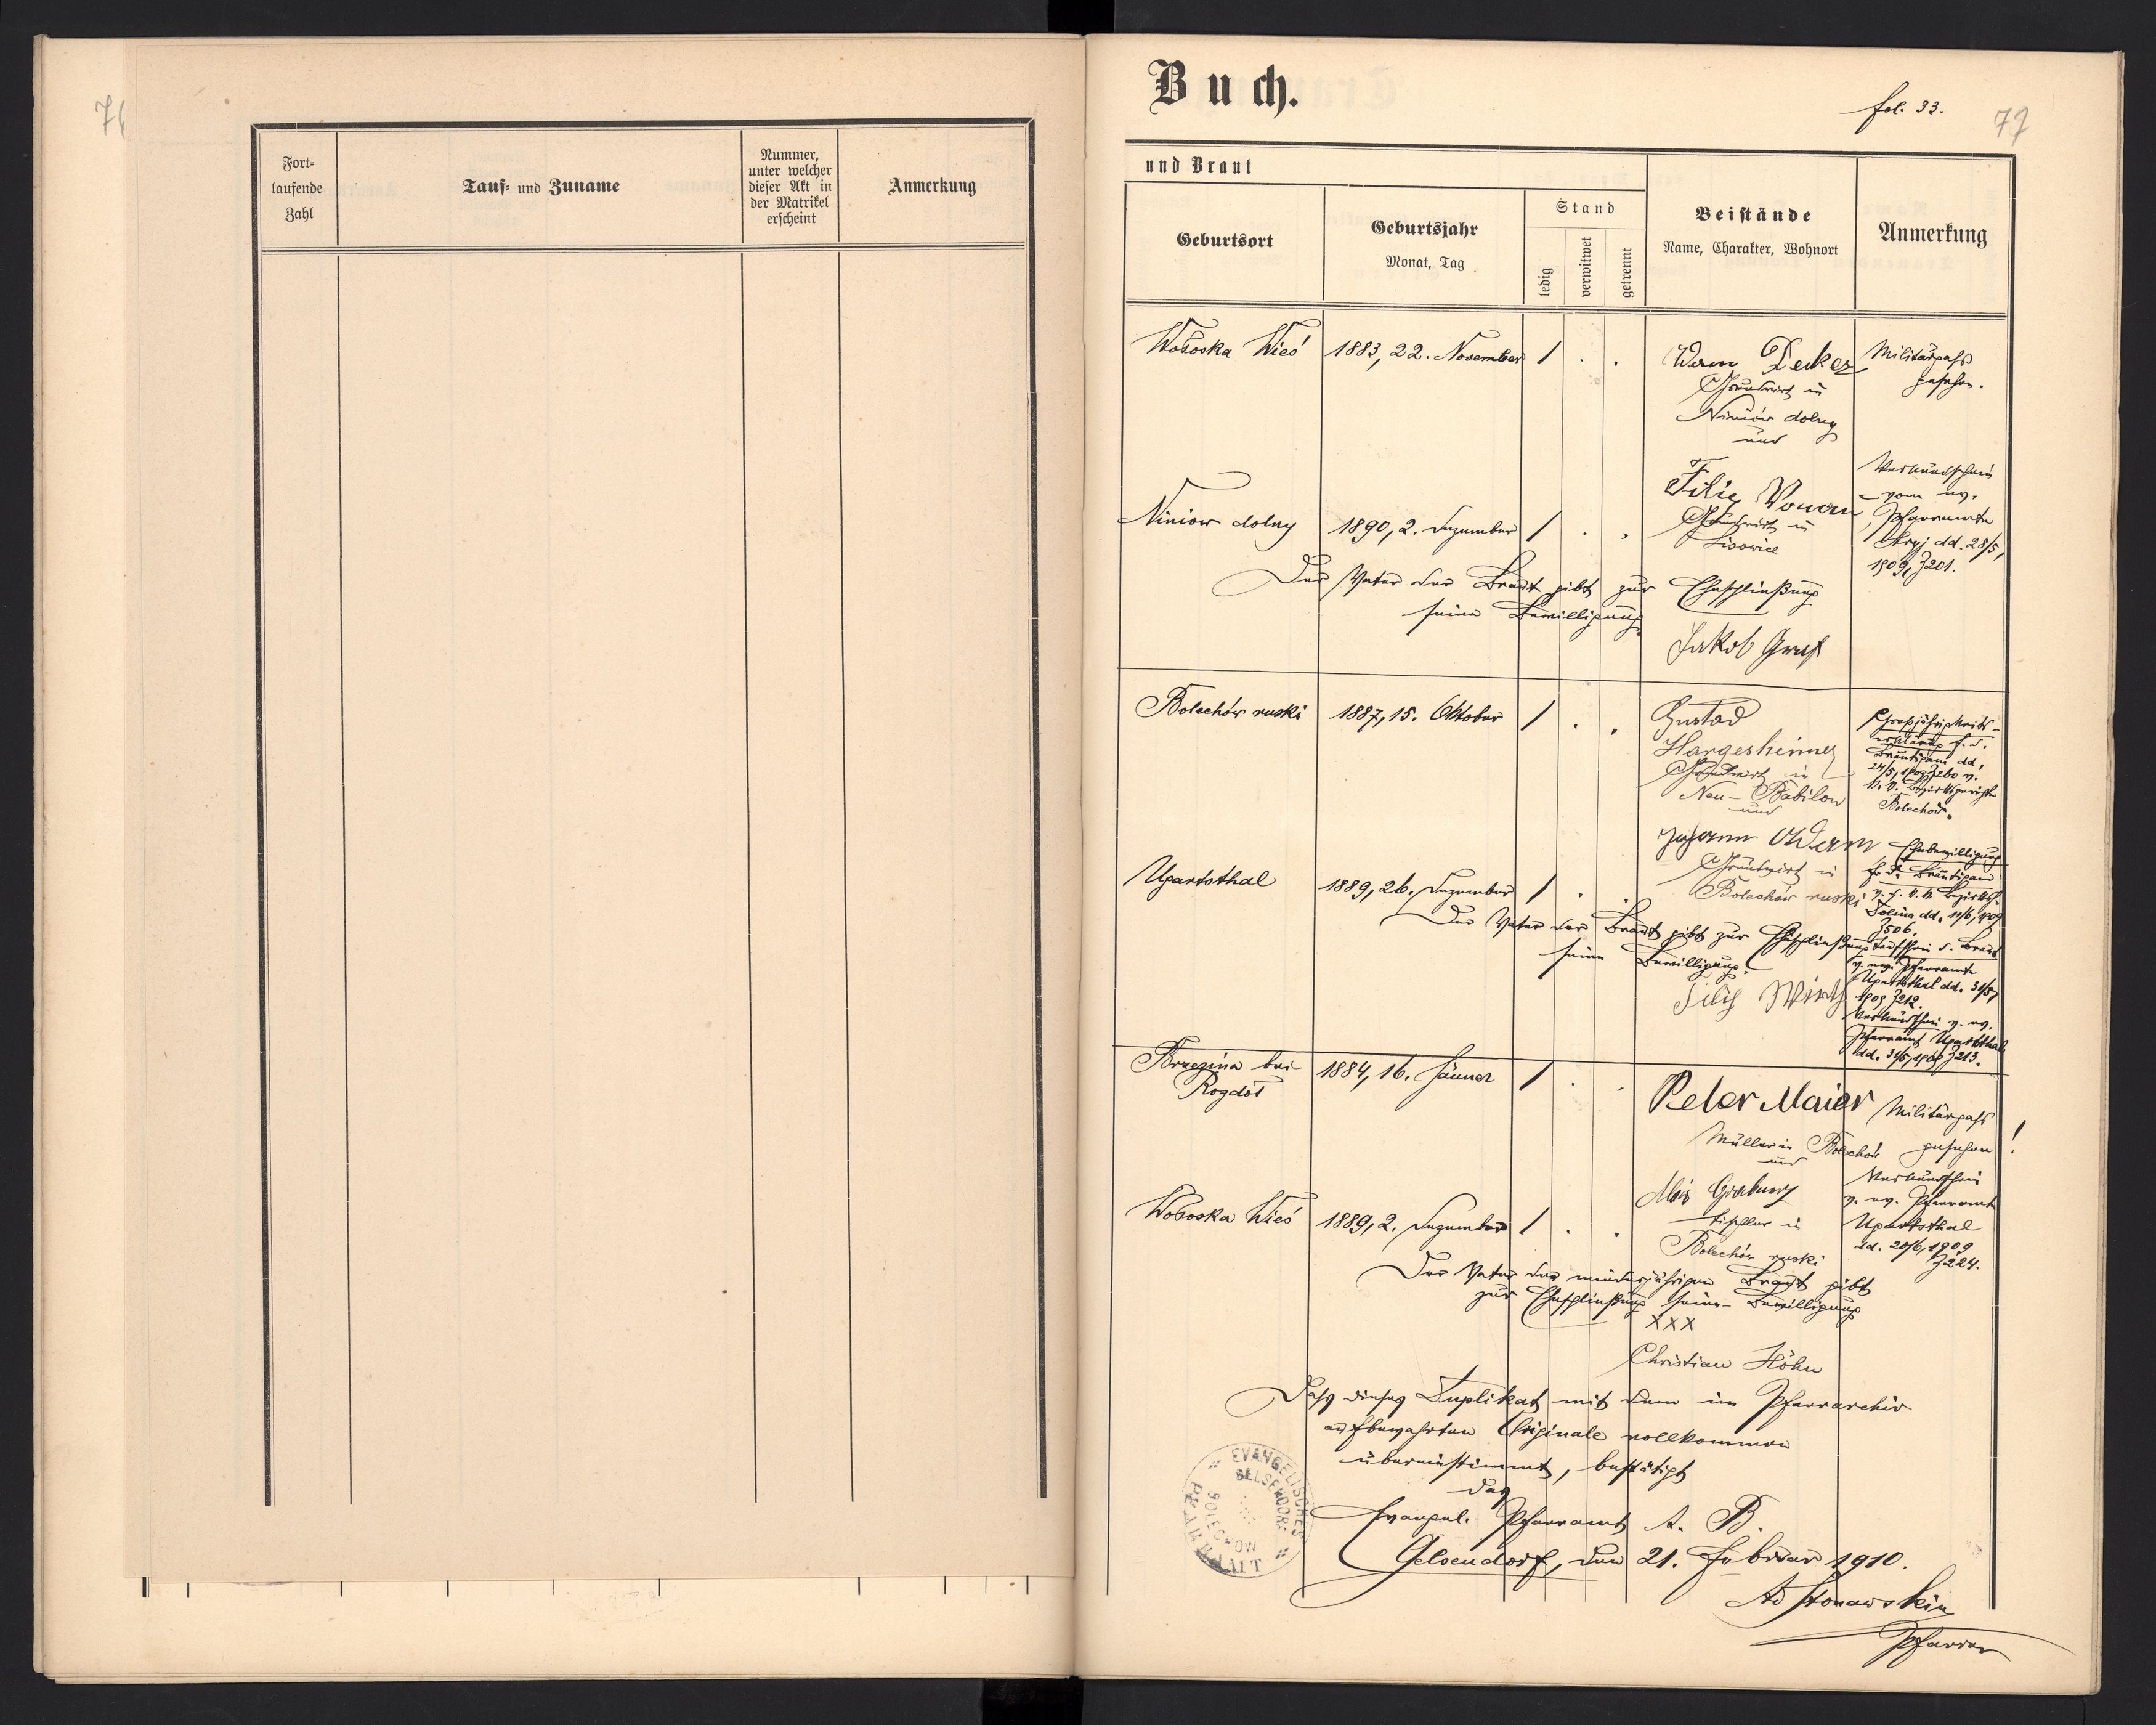 76
Fort-
laufende
Zahl
Tauf- und Zuname
Nummer,
unter welcher
dieser Akt in
der Matrikel
erscheint
Anmerkung
Buch.
fol. 33.
77
und Braut
Geburtsort
Geburtsjahr
Monat, Tag
Stand
ledig
verwitwet
getrennt
Beistände
Name, Charakter, Wohnort
Anmerkung
Wołoska Wieś
1883, 22. November
1 . .
Decker
Grundwirt in
Niniów dolny
und
Militärpaß
gesehen.
Niniow dolny
1890, 2. Dezember
1 . .
Filip
Grundwirt in
Lisowice
Verkündschein
vom ev.
Pfarramte
Stryj dd. 28/5,
1909, Z 201.
Der Vater der Braut gibt zur Eheschließung
seine Bewilligung.
Jakob Graf
Bolechów ruski
1887, 15. Oktober
1 . .
Gustav
Hargesheimer
Grundwirt in
Neu-Babilon
und
Großjährigkeits-
erklärung f. d.
Bräutigam dd.
24/5, 1909 v.
k. k. Bezirksgerichte
Bolechów.
Ugartsthal
1889, 26. Dezember
1 . .
Johann
Grundwirt in
Bolechów ruski
Ehebewilligung
f. d. Bräutigam
v. d. k. k. Bezirksh.
Dolina dd. 11/6, 1909
Z 506.
Taufschein d. Braut
v. ev. Pfarramte
Ugartsthal dd. 31/5,
1909 Z 212.
Verkündschein v. ev.
Pfarramt Ugartsthal
dd. 31/5, 1909 Z 213.
Der Vater der Braut gibt zur Eheschließung
seine Bewilligung.
Filip Wirth
Brzezina bei
Rozdół
1884, 16. Jänner
1 . .
Peter Maier
Müller in Bolechów
und
Militärpaß
gesehen!
Wołoska Wieś
1889, 2. Dezember
1 . .
Tischler in
Bolechów ruski
Verkündschein
v. ev. Pfarramt
Ugartsthal
dd. 20/6, 1909
Z 224.
Der Vater der minderjährigen Braut gibt
zur Eheschließung seine Bewilligung
XXX
Christian Höhn
Daß dieses Duplikat mit dem im Pfarrarchiv
aufbewahrten Originale vollkommen
übereinstimmt, bestätigt
das
Evangel. Pfarramt A. B.
Gelsendorf, den 21. Februar 1910.
Pfarrer
EVANGELISCHES
PFARRAMT
GELSENDORF
BOLECHOW